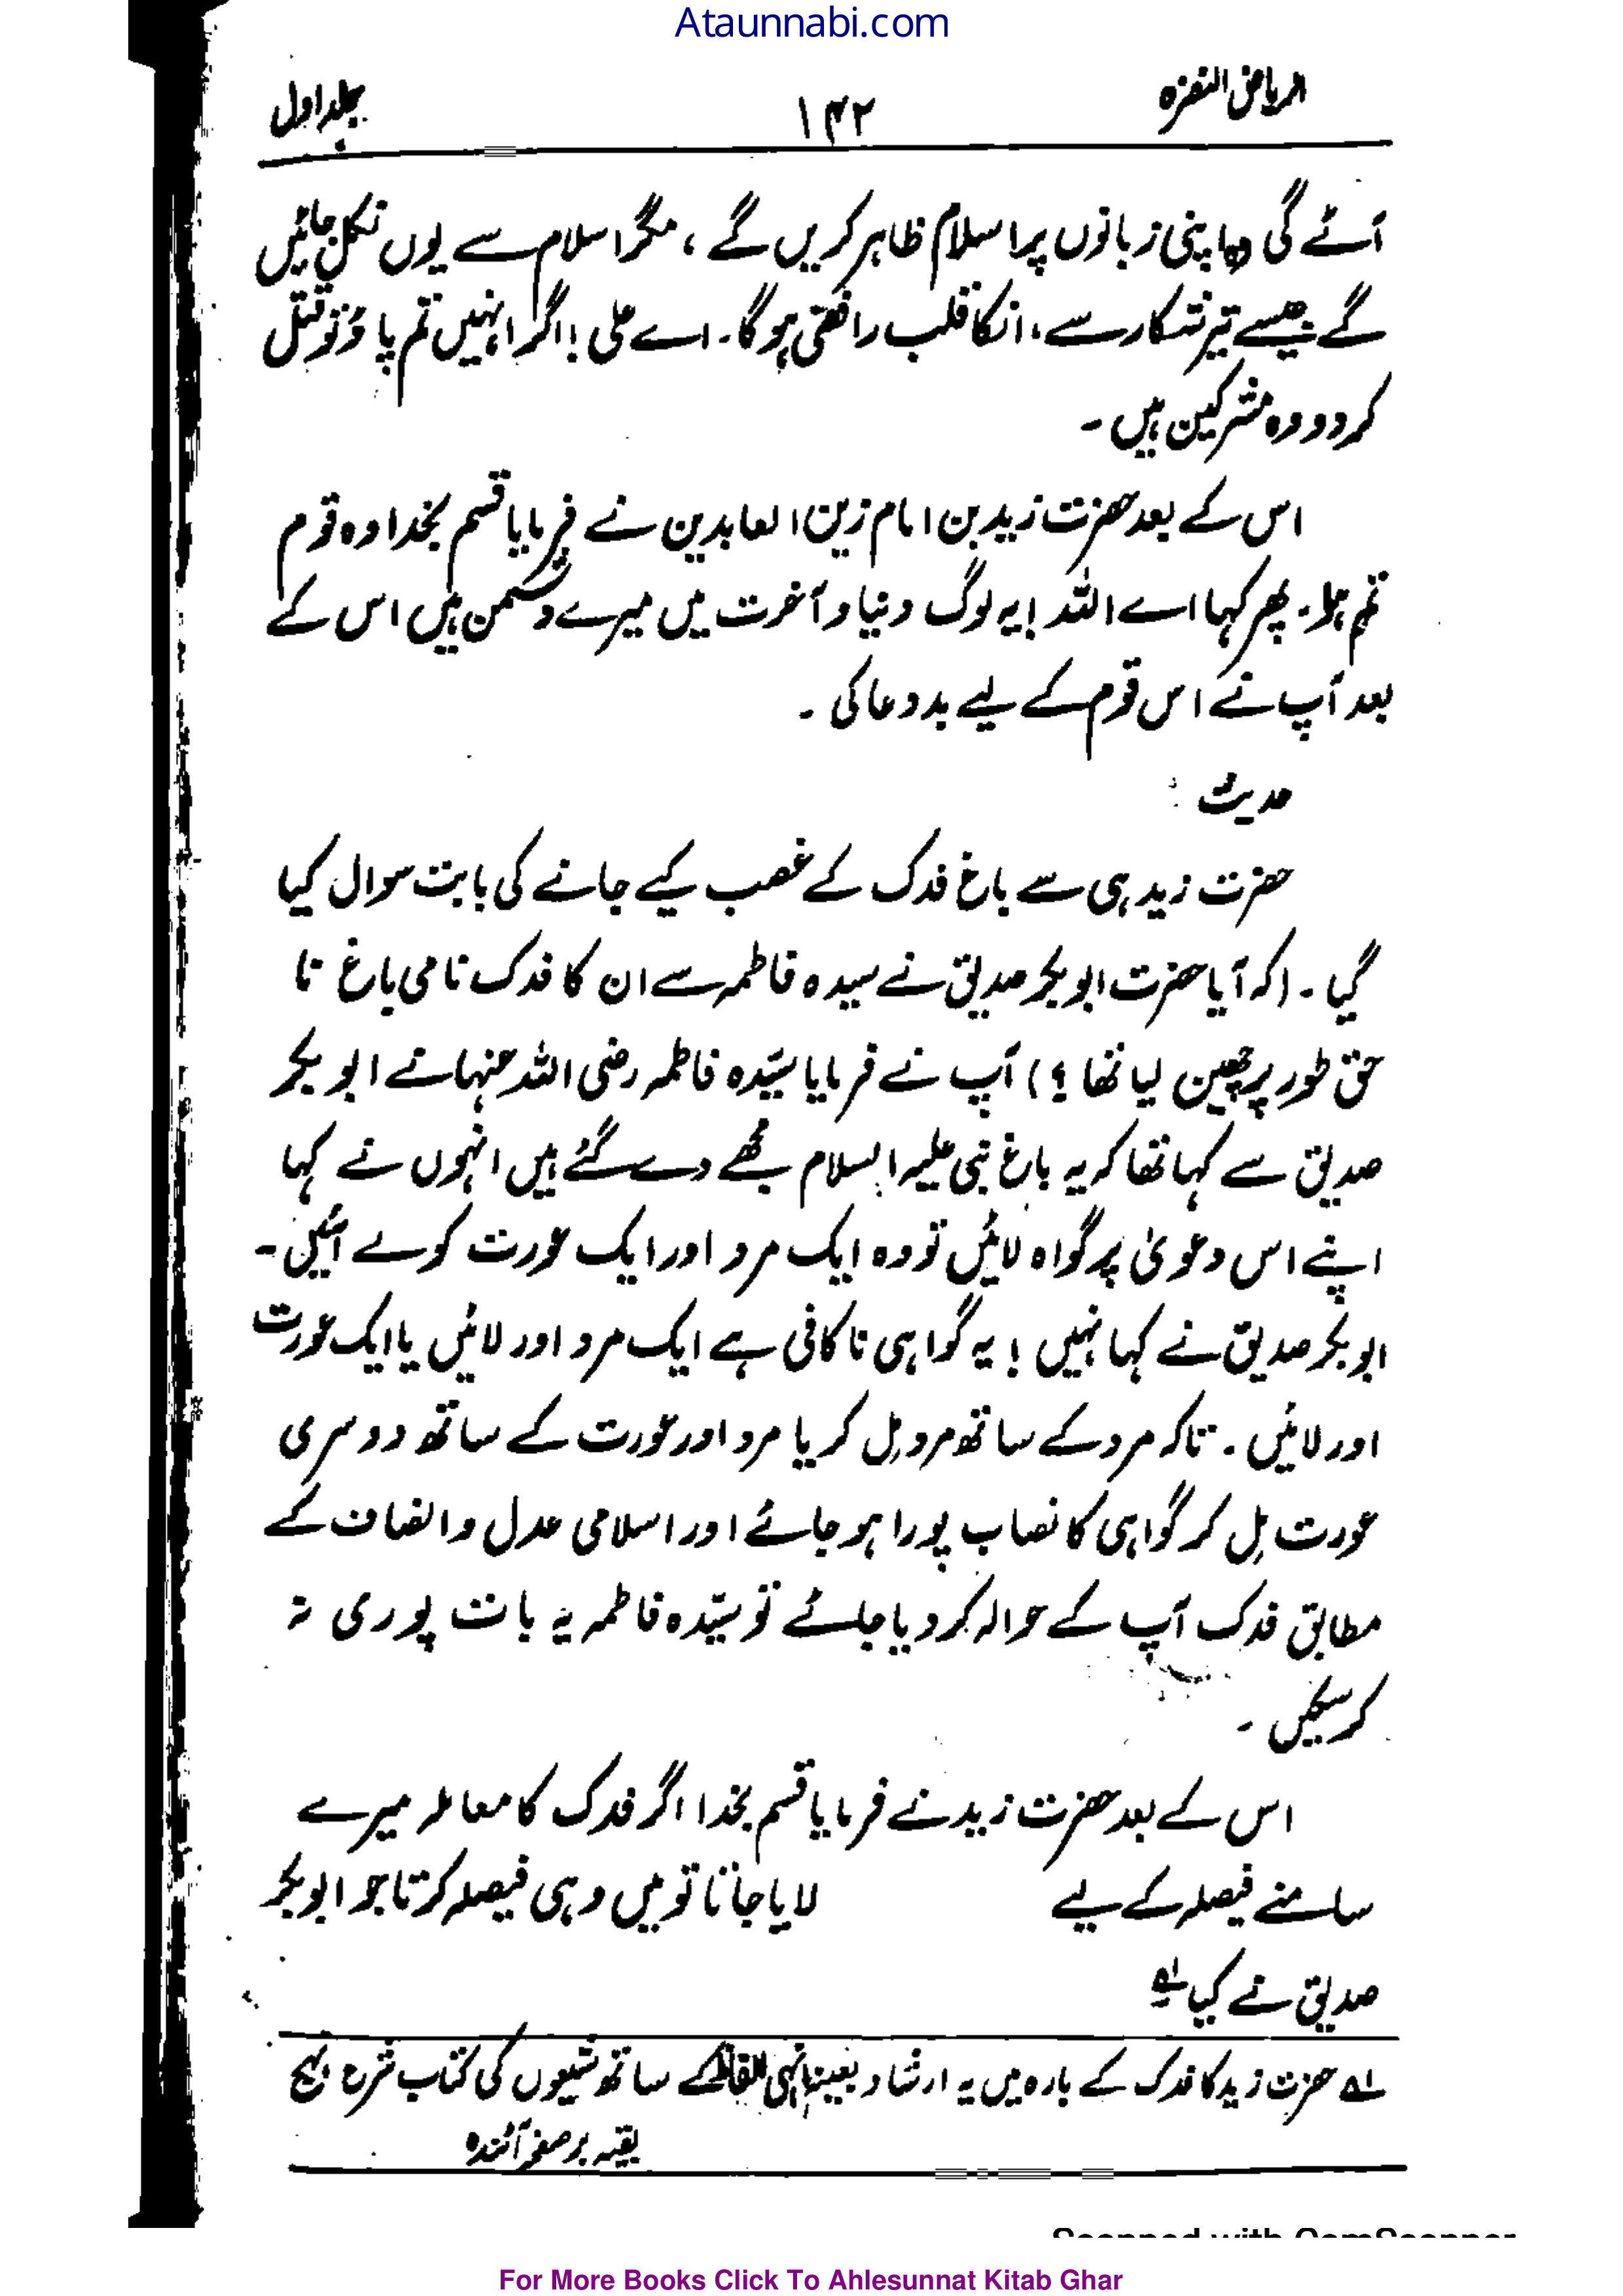 Ataunnabi.com
الریاض النضرہ ۱۴۲ جلد اول
آئے گی وہ اپنی زبانوں پر اسلام ظاہر کریں گے ، مگر اسلام سے یوں نکل جائیں
گے جیسے تیر شکار سے ، انکا قلب رافضی ہو گا ۔ اے علی ! اگر انہیں تم پاؤ تو قتل
کر دو وہ مشرکین ہیں ۔
اس کے بعد حضرت زید بن امام زین العابدین نے فرمایا قسم بخدا وہ قوم
تم ہو ۔ پھر کہا اے اللہ ! یہ لوگ دنیا و آخرت میں میرے دشمن ہیں اس کے
بعد آپ نے اس قوم کے لیے بد دعا کی ۔
حدیث :
حضرت زید ہی سے باغ فدک کے غصب کیے جانے کی بابت سوال کیا
گیا ۔ (کہ آیا حضرت ابوبکر صدیق نے سیدہ فاطمہ سے ان کا فدک نامی باغ نا
حق طور پر چھین لیا تھا ؟) آپ نے فرمایا سیّدہ فاطمہ رضی اللہ عنہا نے ابوبکر
صدیق سے کہا تھا کہ یہ باغ نبی علیہ السلام مجھے دے گئے ہیں انہوں نے کہا
اپنے اس دعویٰ پر گواہ لائیں تو وہ ایک مرد اور ایک عورت کو لے آئیں ۔
ابوبکر صدیق نے کہا نہیں ! یہ گواہی ناکافی ہے ایک مرد اور لائیں یا ایک عورت
اور لائیں ۔ تاکہ مرد کے ساتھ مرد مِل کر یا مرد اور عورت کے ساتھ دوسری
عورت مِل کر گواہی کا نصاب پورا ہو جائے اور اسلامی عدل و انصاف کے
مطابق فدک آپ کے حوالہ کر دیا جائے تو سیّدہ فاطمہ یہ بات پوری نہ
کر سکیں ۔
اس کے بعد حضرت زید نے فرمایا قسم بخدا اگر فدک کا معاملہ میرے
سامنے فیصلہ کے لیے لایا جاتا تو میں وہی فیصلہ کرتا جو ابوبکر
صدیق نے کیا ؎۱
؎۱ حضرت زید کا فدک کے بارہ میں یہ ارشاد بعینہٖ انہی الفاظ کے ساتھ شیعوں کی کتاب شرح نہج
بقیہ بر صفحہ آئندہ
Scanned with CamScanner
For More Books Click To Ahlesunnat Kitab Ghar